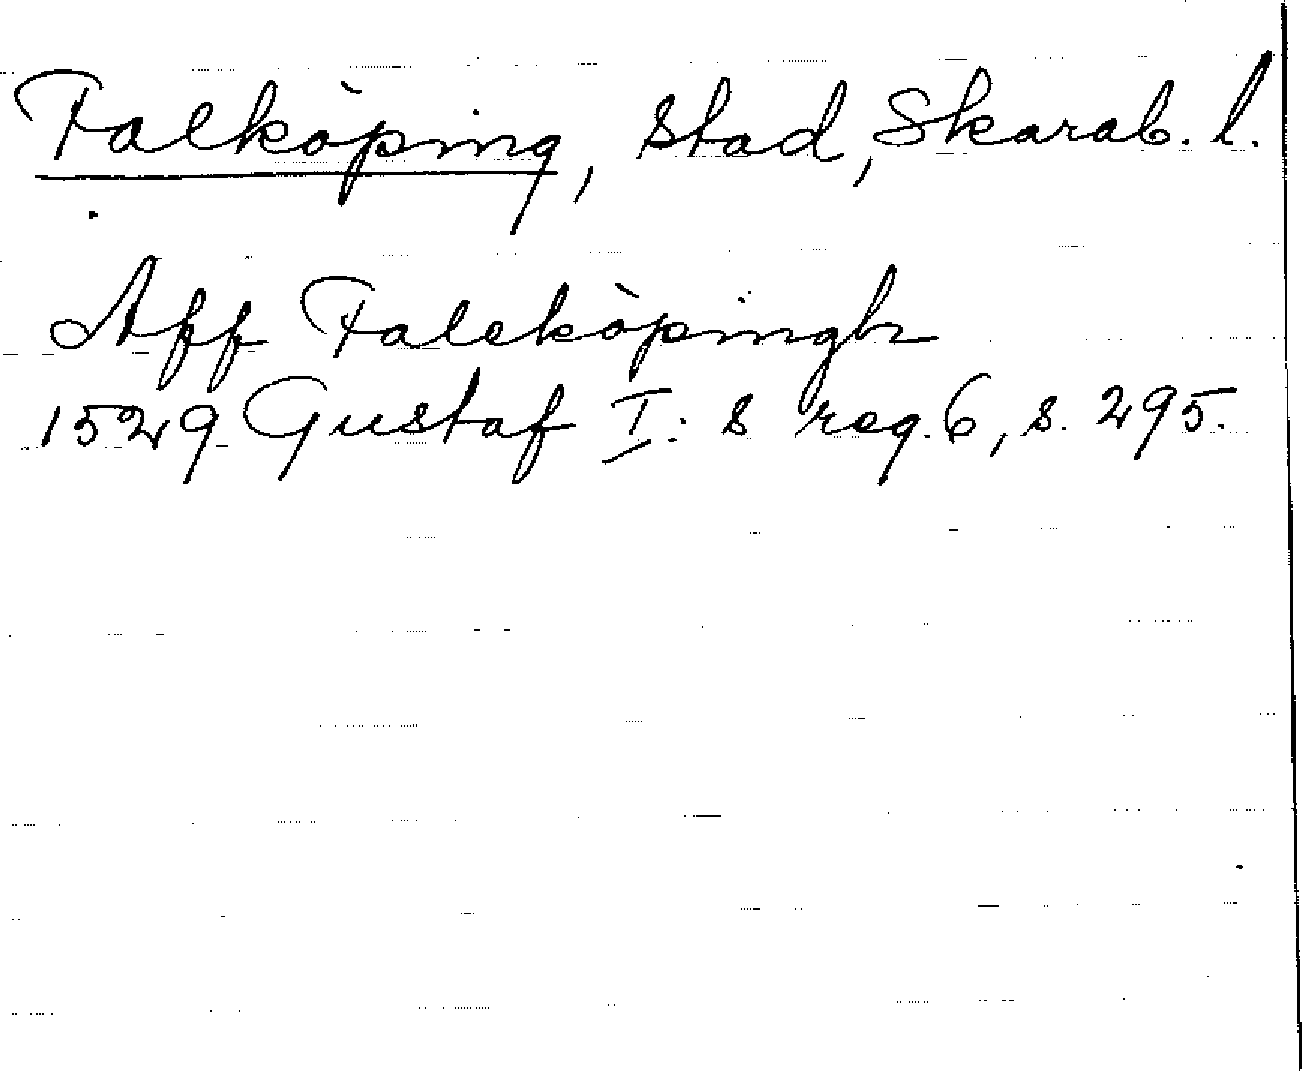 Falköping, stad, Skarab. l.
Aff Faleköpingh
1529 Gustaf I:s reg. 6, s. 295.